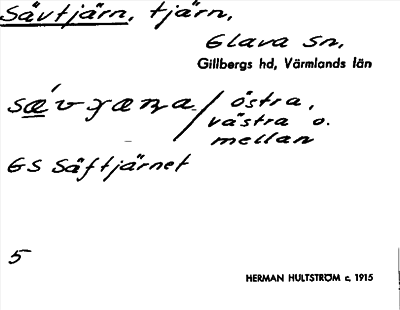 Sävtjärn, tjärn,
Glava sn,
Gillbergs hd, Värmlands län
östra,
västra o.
mellan
GS Säftjärnet
5
HERMAN HULTSTRÖM c. 1915